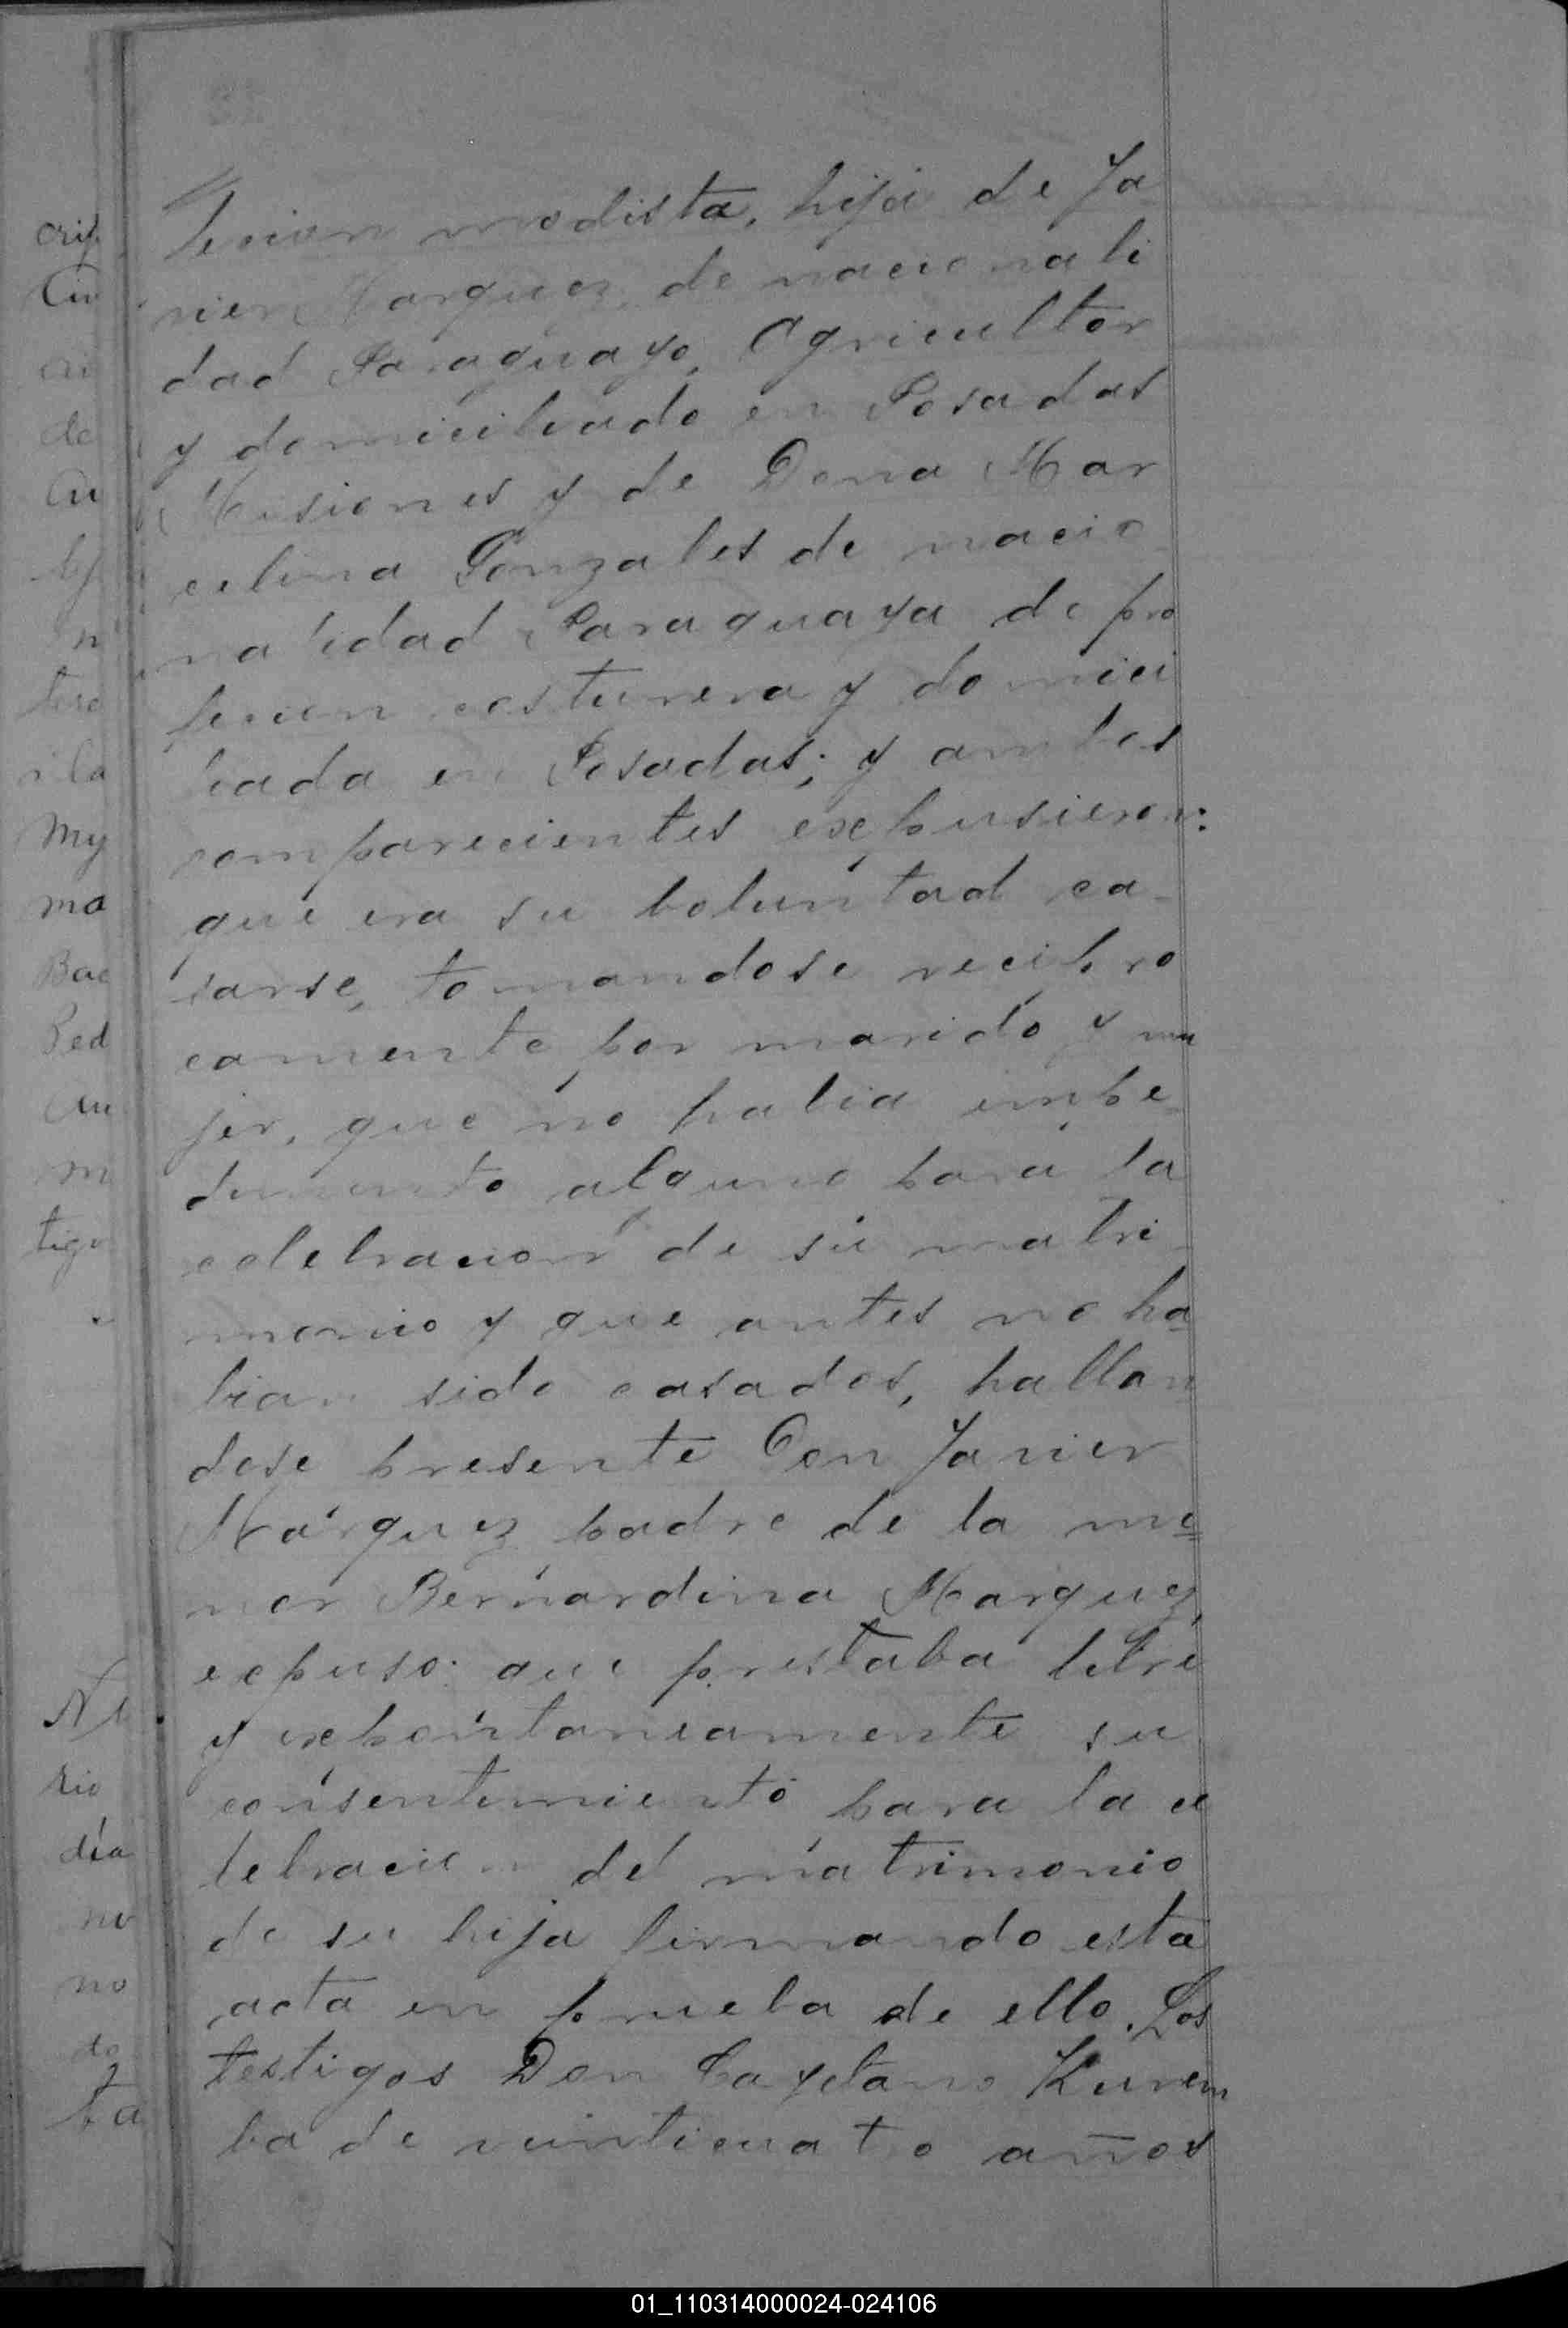 fecion modista, hija de Ja
vier Marquez de nacionali
dad Paraguayo, Agricultor
y domiciliado en Posadas
Misiones y de Dona Mar
celina Gonzales de nacio
nalidad Paraguaya de pro
fecion costurera y domici
liada en Posadas; y ambos
comparecientes expusieron:
que era su boluntad ca-
sarse, tomandose recipro
camente por marido y mu
jer, que no habia impe-
dimento alguno para la
celebracion de su matri-
monio y que antes no ha
bian sido casados, hallan
dose presente Don Javier
Márquez padre de la me
nor Bernardina Marquez,
expuso: que prestaba libre
y expontaneamente su
consentimiento para la ce
lebracion del matrimonio
de su hija firmando esta
acta en prueba de ello. Los
testigos Don Cayetano Kurem
ba de veinticuatro años
crip
Civ
ci
de
Cu
n
tero
i la
My
ma
Bac
Ped
m
tigo
rio
día
no
no
do
ta
01_110314000024-024106